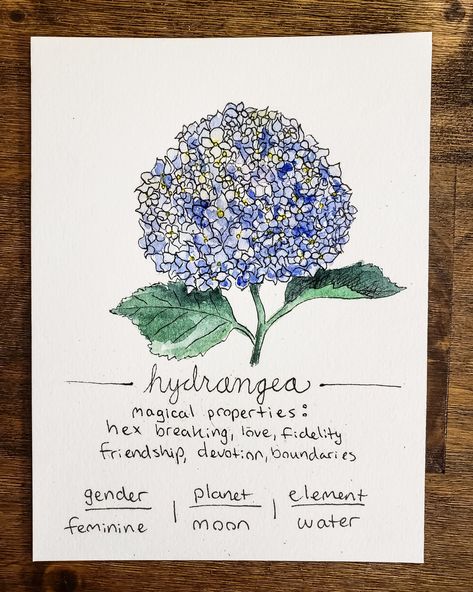 hydrangea
magical properties:
hex breaking, love, fidelity
friendship, devotion, boundaries
gender | planet | element
feminine | moon | water